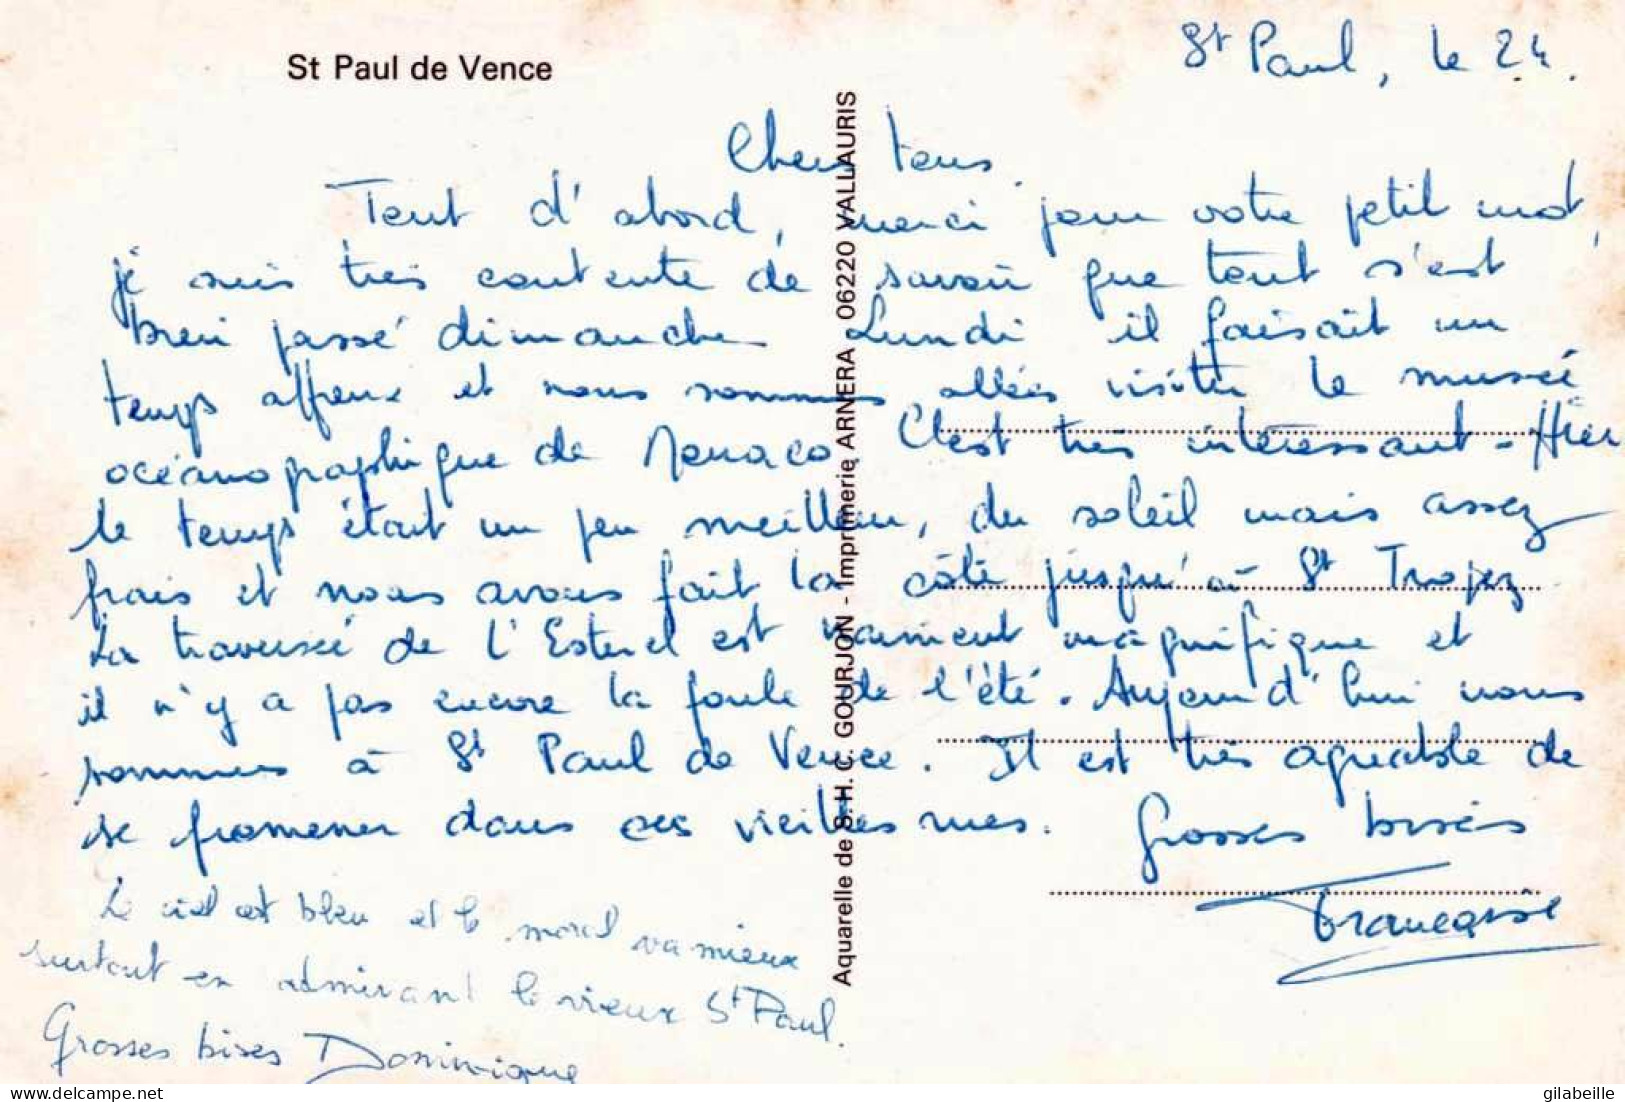 St Paul de Vence
St Paul, le 24.
Chers tous.
Tout d'abord, merci pour votre petit mot,
je suis très contente de savoir que tout s'est
bien passé dimanche Lundi il faisait un
temps affreux et nous sommes allées visiter le musée
océanographique de Monaco C'est très intéressant - Hier
le temps était un peu meilleur, du soleil mais assez
frais et nous avons fait la côte jusqu'à St Tropez
La traversée de l'Esterel est vraiment magnifique et
il n'y a pas encore la foule de l'été. Aujourd'hui nous
sommes à St Paul de Vence. Il est très agréable de
se promener dans ces vieilles rues. Grosses bises
Françoise
Le ciel est bleu et le moral va mieux
surtout en admirant le vieux St Paul.
Grosses bises Dominique
Aquarelle de S.H.C. GOURJON - Imprimerie ARNERA 06220 VALLAURIS
gilabeille